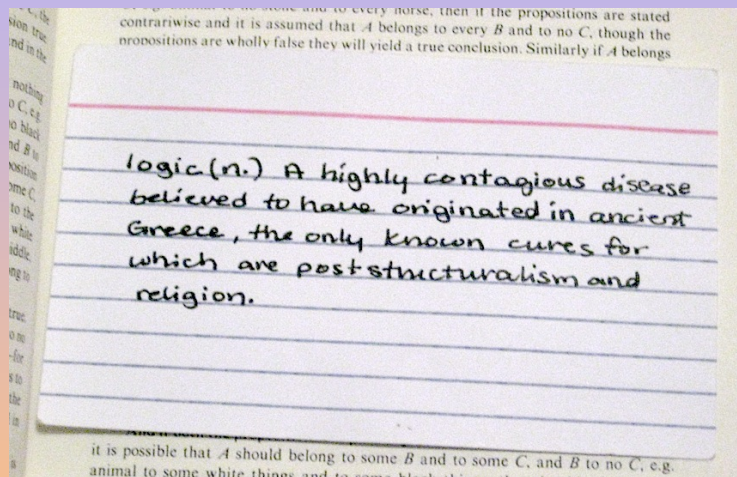 to every horse, then if the propositions are stated
contrariwise and it is assumed that A belongs to every B and to no C, though the
propositions are wholly false they will yield a true conclusion. Similarly if A belongs
sion true
nd in the
nothing
o C, e.g.
o black
nd B to
position
ome C
to the
white
iddle.
ng to
true.
o no
-for
s to
the
in
logic (n.) A highly contagious disease
believed to have originated in ancient
Greece, the only known cures for
which are poststructuralism and
religion.
it is possible that A should belong to some B and to some C, and B to no C, e.g.
animal to some white things and to some